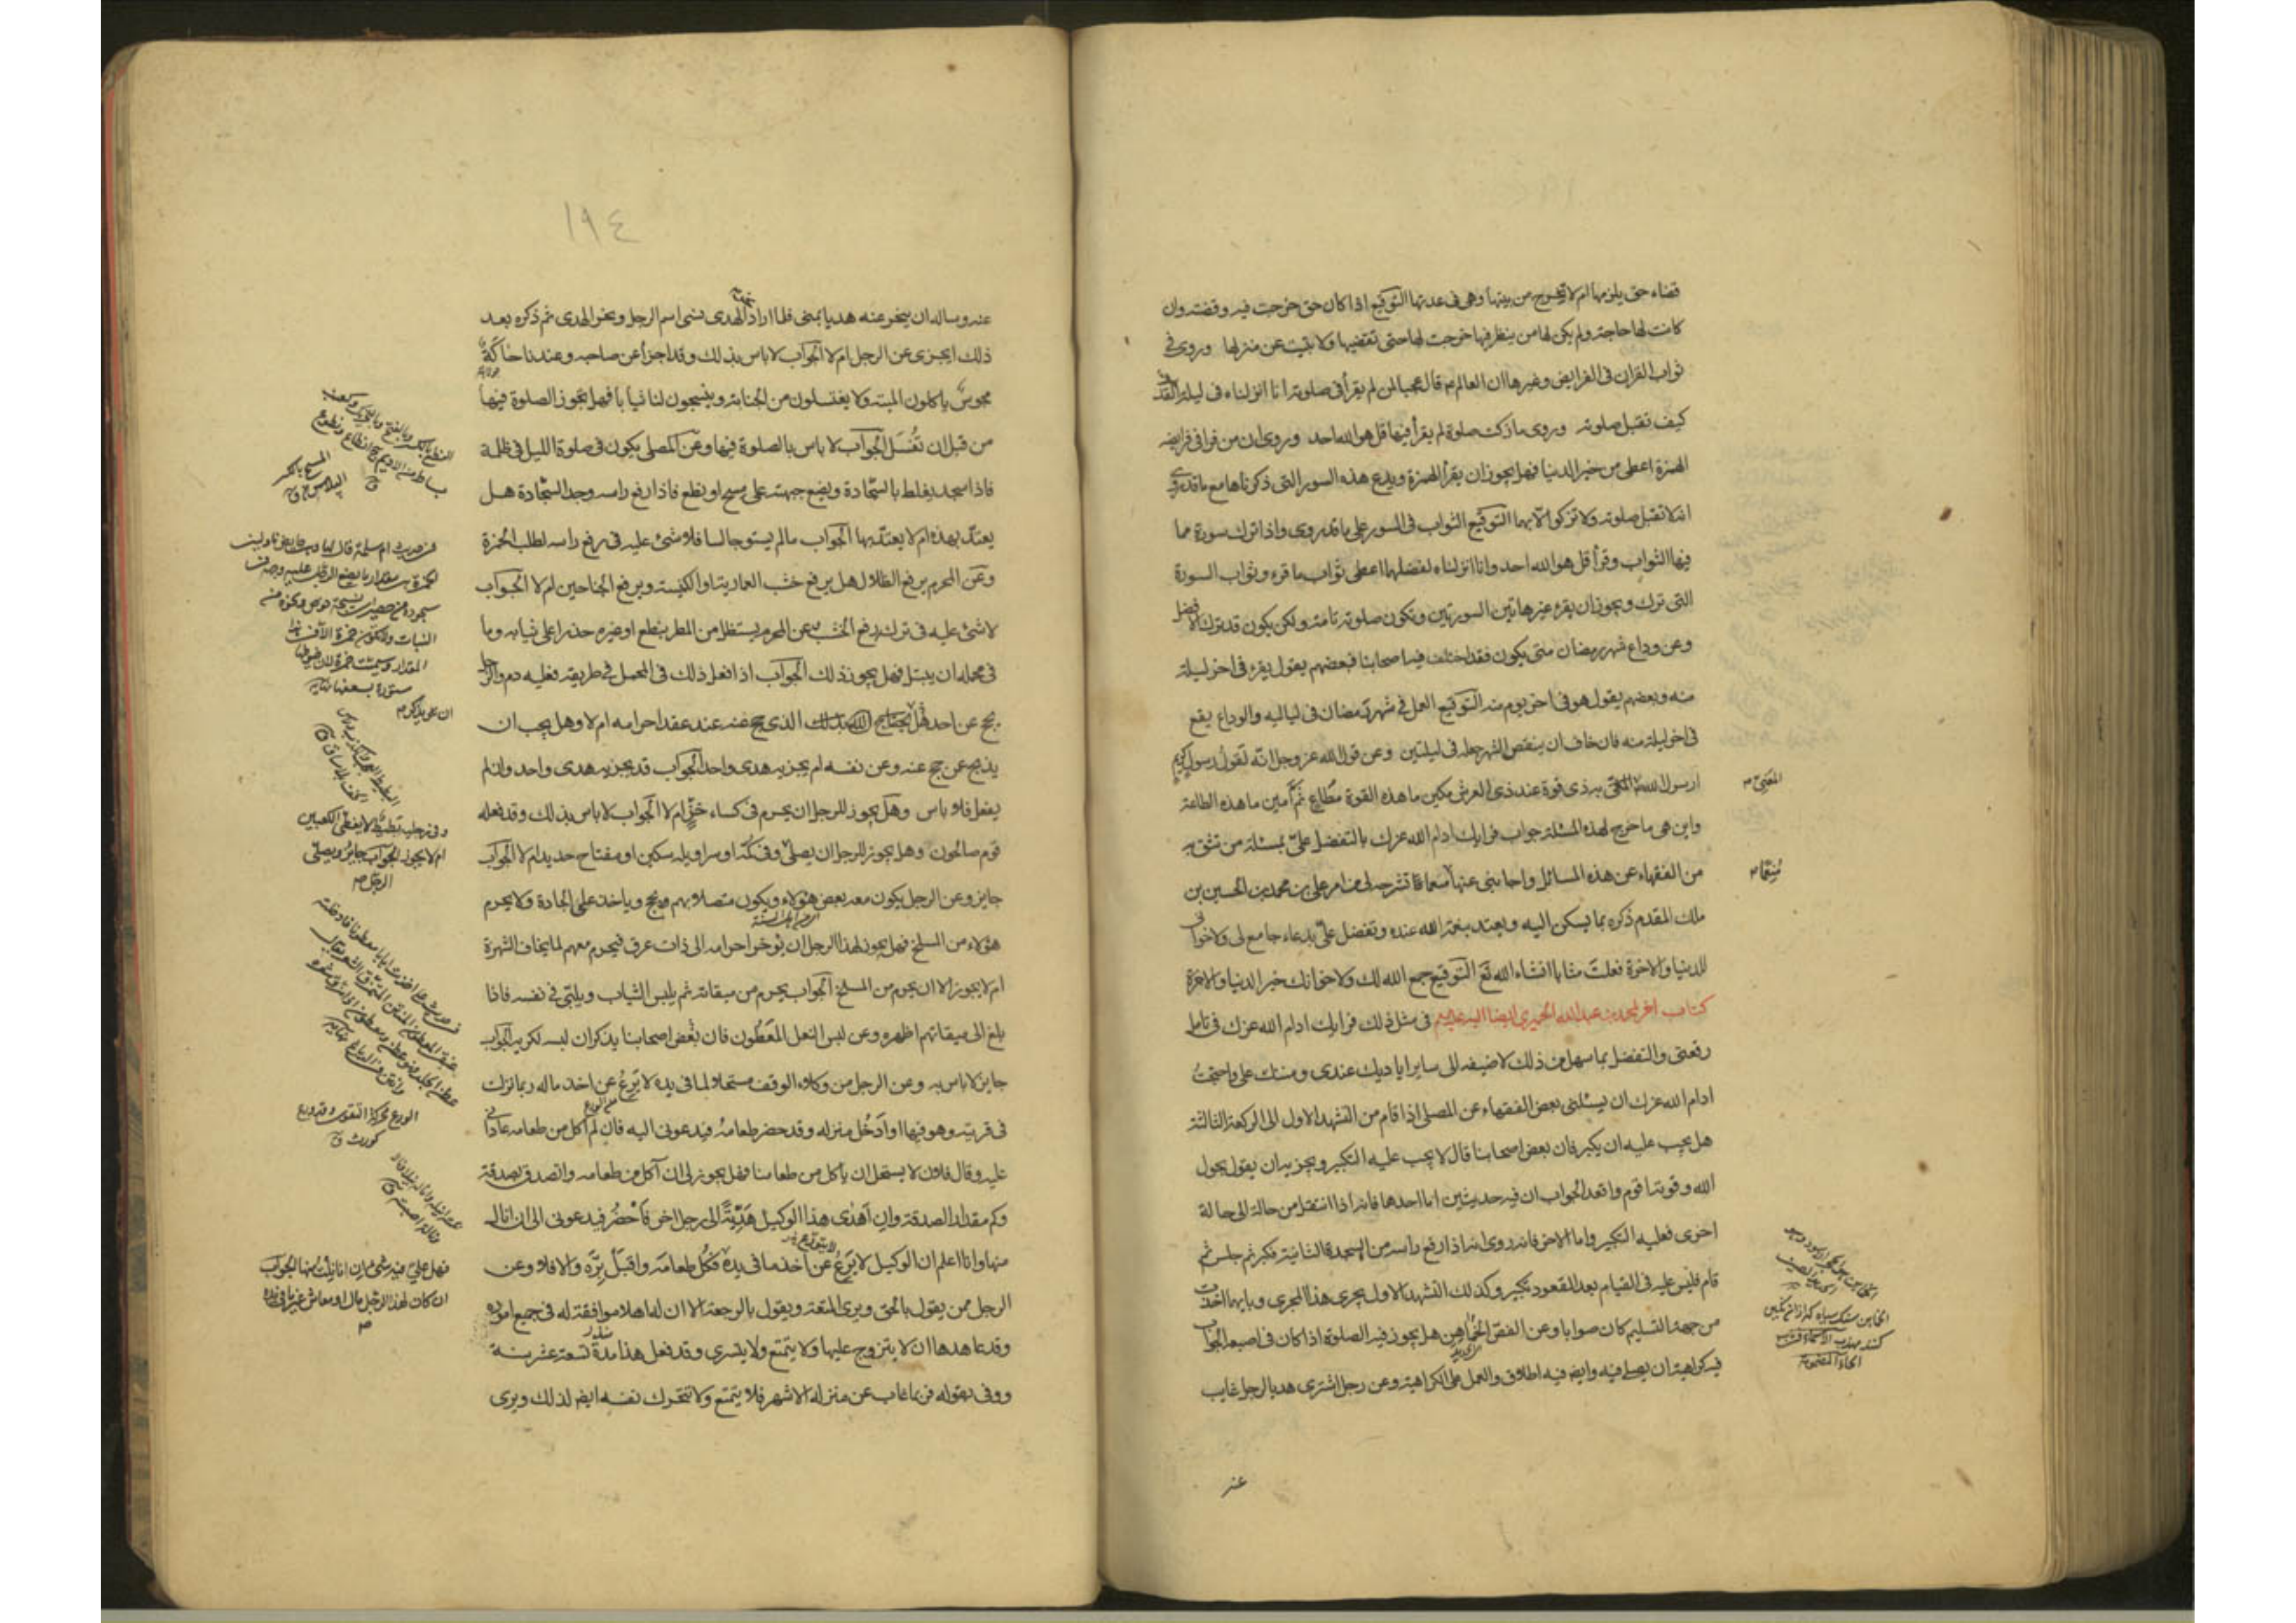 قضاء حق يلزمها ام لا تخرج من بيتها وهى فى عدتها التوقيع اذا كان حق خرجت فيه وقضته وان
كانت لها حاجة ولم يكن لها من ينظر فيها خرجت لها حتى تقضيها ولا تبيت عن منزلها وروى فى
ثواب القران فى الفرايض وغيرها ان العالم ع قال عجبا لمن لم يقرأ فى صلوته انا انزلناه فى ليلة القدر
كيف تقبل صلوته وروى ما زكت صلوة لم يقرأ فيها قل هو الله احد وروى ان من قرا فى فرايضه
الهمزة اعطى من خير الدنيا فهل يجوز ان يقرأ الهمزة ويدع هذه السور التى ذكرناها مع ما قد روى
انه لا تقبل صلوته ولا تزكوا الا بهما التوقيع الثواب فى السور على ما قد روى واذا ترك سورة مما
فيها الثواب وقرأ قل هو الله احد وانا انزلناه لفضلهما اعطى ثواب ما قرء وثواب السورة
التى ترك ويجوز ان يقرء غير هاتين السورتين وتكون صلوته تامة ولكن يكون قد ترك الافضل
وعن وداع شهر رمضان متى يكون فقد اختلف فيه اصحابنا فبعضهم يقول يقرء فى اخر ليلة
منه وبعضهم يقول هو فى اخر يوم منه التوقيع العمل فى شهر رمضان فى لياليه والوداع يقع
فى اخر ليلة منه فان خاف ان ينقص الشهر جعله فى ليلتين وعن قول الله عز وجل انه لقول رسول كريم
ارسول الله المعنى به ذى قوة عند ذى العرش مكين ما هذه القوة مطاع ثم امين ما هذه الطاعة
المعنى
واين هى ما خرج لهذه المسئلة جواب فرايك ادام الله عزك بالتفضل على بمسئلة من تثق به
من الفقهاء عن هذه المسائل واجابنى عنها منعما ما تشرحه لى من امر على بن محمد بن الحسين بن
منعما
ملك المقدم ذكره بما يسكن اليه ويعتد بنعمة الله عنده وتفضل على بدعاء جامع لى ولاخوانى
للدنيا والاخرة فعلت مثابا انشاء الله تع التوقيع جمع الله لك ولاخوانك خير الدنيا والاخرة
كتاب اخر لمحمد بن عبد الله الحميرى ايضا اليه فى مثل ذلك فرايك ادام الله عزك فى تامل
رقعتى والتفضل بما سهل من ذلك لاضيفه الى ساير اياديك عندى ومننك على واحتجت
ادام الله عزك ان يسئلنى بعض الفقهاء عن المصلى اذا قام من التشهد الاول الى الركعة الثالثة
هل يجب عليه ان يكبر فان بعض اصحابنا قال لا يجب عليه التكبير ويجزيه ان يقول بحول
الله وقوته اقوم واقعد الجواب ان فيه حديثين اما احدهما فانه اذا انتقل من حالة الى حالة
اخرى فعليه التكبير واما الاخر فانه روى انه اذا رفع راسه من السجدة الثانية فكبر ثم جلس ثم
قام فليس عليه فى القيام بعد القعود تكبير وكذلك التشهد الاول يجرى هذا المجرى وبايهما اخذت
من جهة التسليم كان صوابا وعن الفص الخماهن هل يجوز فيه الصلوة اذا كان فى اصبعه الجواب
فيه كراهية ان يصلى فيه وايضا فيه اطلاق والعمل على الكراهية وعن رجل اشترى هديا لرجل غايب
عنه
١٩٤
عنه وساله ان ينحر عنه هديا بمنى فلما اراد نحر الهدى نسى اسم الرجل ونحر الهدى ثم ذكره بعد
ذلك ايجزى عن الرجل ام لا الجواب لا باس بذلك وقد اجزأ عن صاحبه وعندنا حاكة
مجوس ياكلون الميتة ولا يغتسلون من الجنابة وينسجون لنا ثيابا فهل تجوز الصلوة فيها
من قبل ان تغسل الجواب لا باس بالصلوة فيها وعن المصلى يكون فى صلوة الليل فى ظلمة
فاذا سجد يغلط بالسجادة ويضع جبهته على مسح او نطع فاذا رفع راسه وجد السجادة هل
يعتد بهذه ام لا يعتد بها الجواب ما لم يستو جالسا فلا شئ عليه فى رفع راسه لطلب الخمرة
وعن المحرم يرفع الظلال هل يرفع خشب العمارية او الكنيسة ويرفع الجناحين ام لا الجواب
لا شئ عليه فى ترك رفع الخشب وعن المحرم يستظل من المطر بنطع او غيره حذرا على ثيابه وما
فى محمله ان يبتل فهل يجوز ذلك الجواب اذا فعل ذلك فى المحمل فى طريقه فعليه دم والرجل
يحج عن احد هل يحتاج ان يذكر الذى حج عنه عند عقد احرامه ام لا وهل يجب ان
يذبح عمن حج عنه وعن نفسه ام يجزيه هدى واحد الجواب قد يجزيه هدى واحد وان لم
يفعل فلا باس وهل يجوز للرجل ان يحرم فى كساء خز ام لا الجواب لا باس بذلك وقد فعله
قوم صالحون وهل يجوز للرجل ان يصلى وفى كمه او سراويله سكين او مفتاح حديد ام لا الجواب
جايز وعن الرجل يكون معه بعض هؤلاء ويكون متصلا بهم يحج وياخذ على الجادة ولا يحرم
هؤلاء من المسلخ فهل يجوز لهذا الرجل ان يؤخر احرامه الى ذات عرق فيحرم معهم لما يخاف الشهرة
ام لا يجوز الا ان يحرم من المسلخ الجواب يحرم من ميقاته ثم يلبس الثياب ويلبى فى نفسه فاذا
بلغ الى ميقاتهم اظهره وعن لبس النعل المعطون فان بعض اصحابنا يذكر ان لبسه كريه الجواب
جايز لا باس به وعن الرجل من وكلاء الوقف مستحلا لما فى يده لا يرع عن اخذ ماله ربما نزلت
فى قريته وهو فيها او ادخل منزله وقد حضر طعامه فيدعونى اليه فان لم اكل من طعامه عادانى
عليه وقال فلان لا يستحل ان ياكل من طعامنا فهل يجوز لى ان آكل من طعامه واتصدق بصدقة
وكم مقدار الصدقة وان اهدى هذا الوكيل هدية الى رجل اخر فاحضر فيدعونى الى ان انال
منها وانا اعلم ان الوكيل لا يرع عن اخذ ما فى يده فكل طعامه واقبل بره والا فلا وعن
الرجل ممن يقول بالحق ويرى المتعة ويقول بالرجعة الا ان له اهلا موافقة له فى جميع اموره
وقد عاهدها ان لا يتزوج عليها ولا يتمتع ولا يتسرى وقد فعل هذا مدة تسعة عشر سنة
ووفى بقوله فربما غاب عن منزله الاشهر فلا يتمتع ولا تتحرك نفسه ايضا لذلك ويرى
وفى رجليه بطيط لا يغطى الكعبين
ام لا يجوز الجواب جايز ويصلى
الرجل
فهل على فيه شئ ان انا نلت منها الجواب
ان كان لهذا الرجل مال او معاش غير ما فى يده